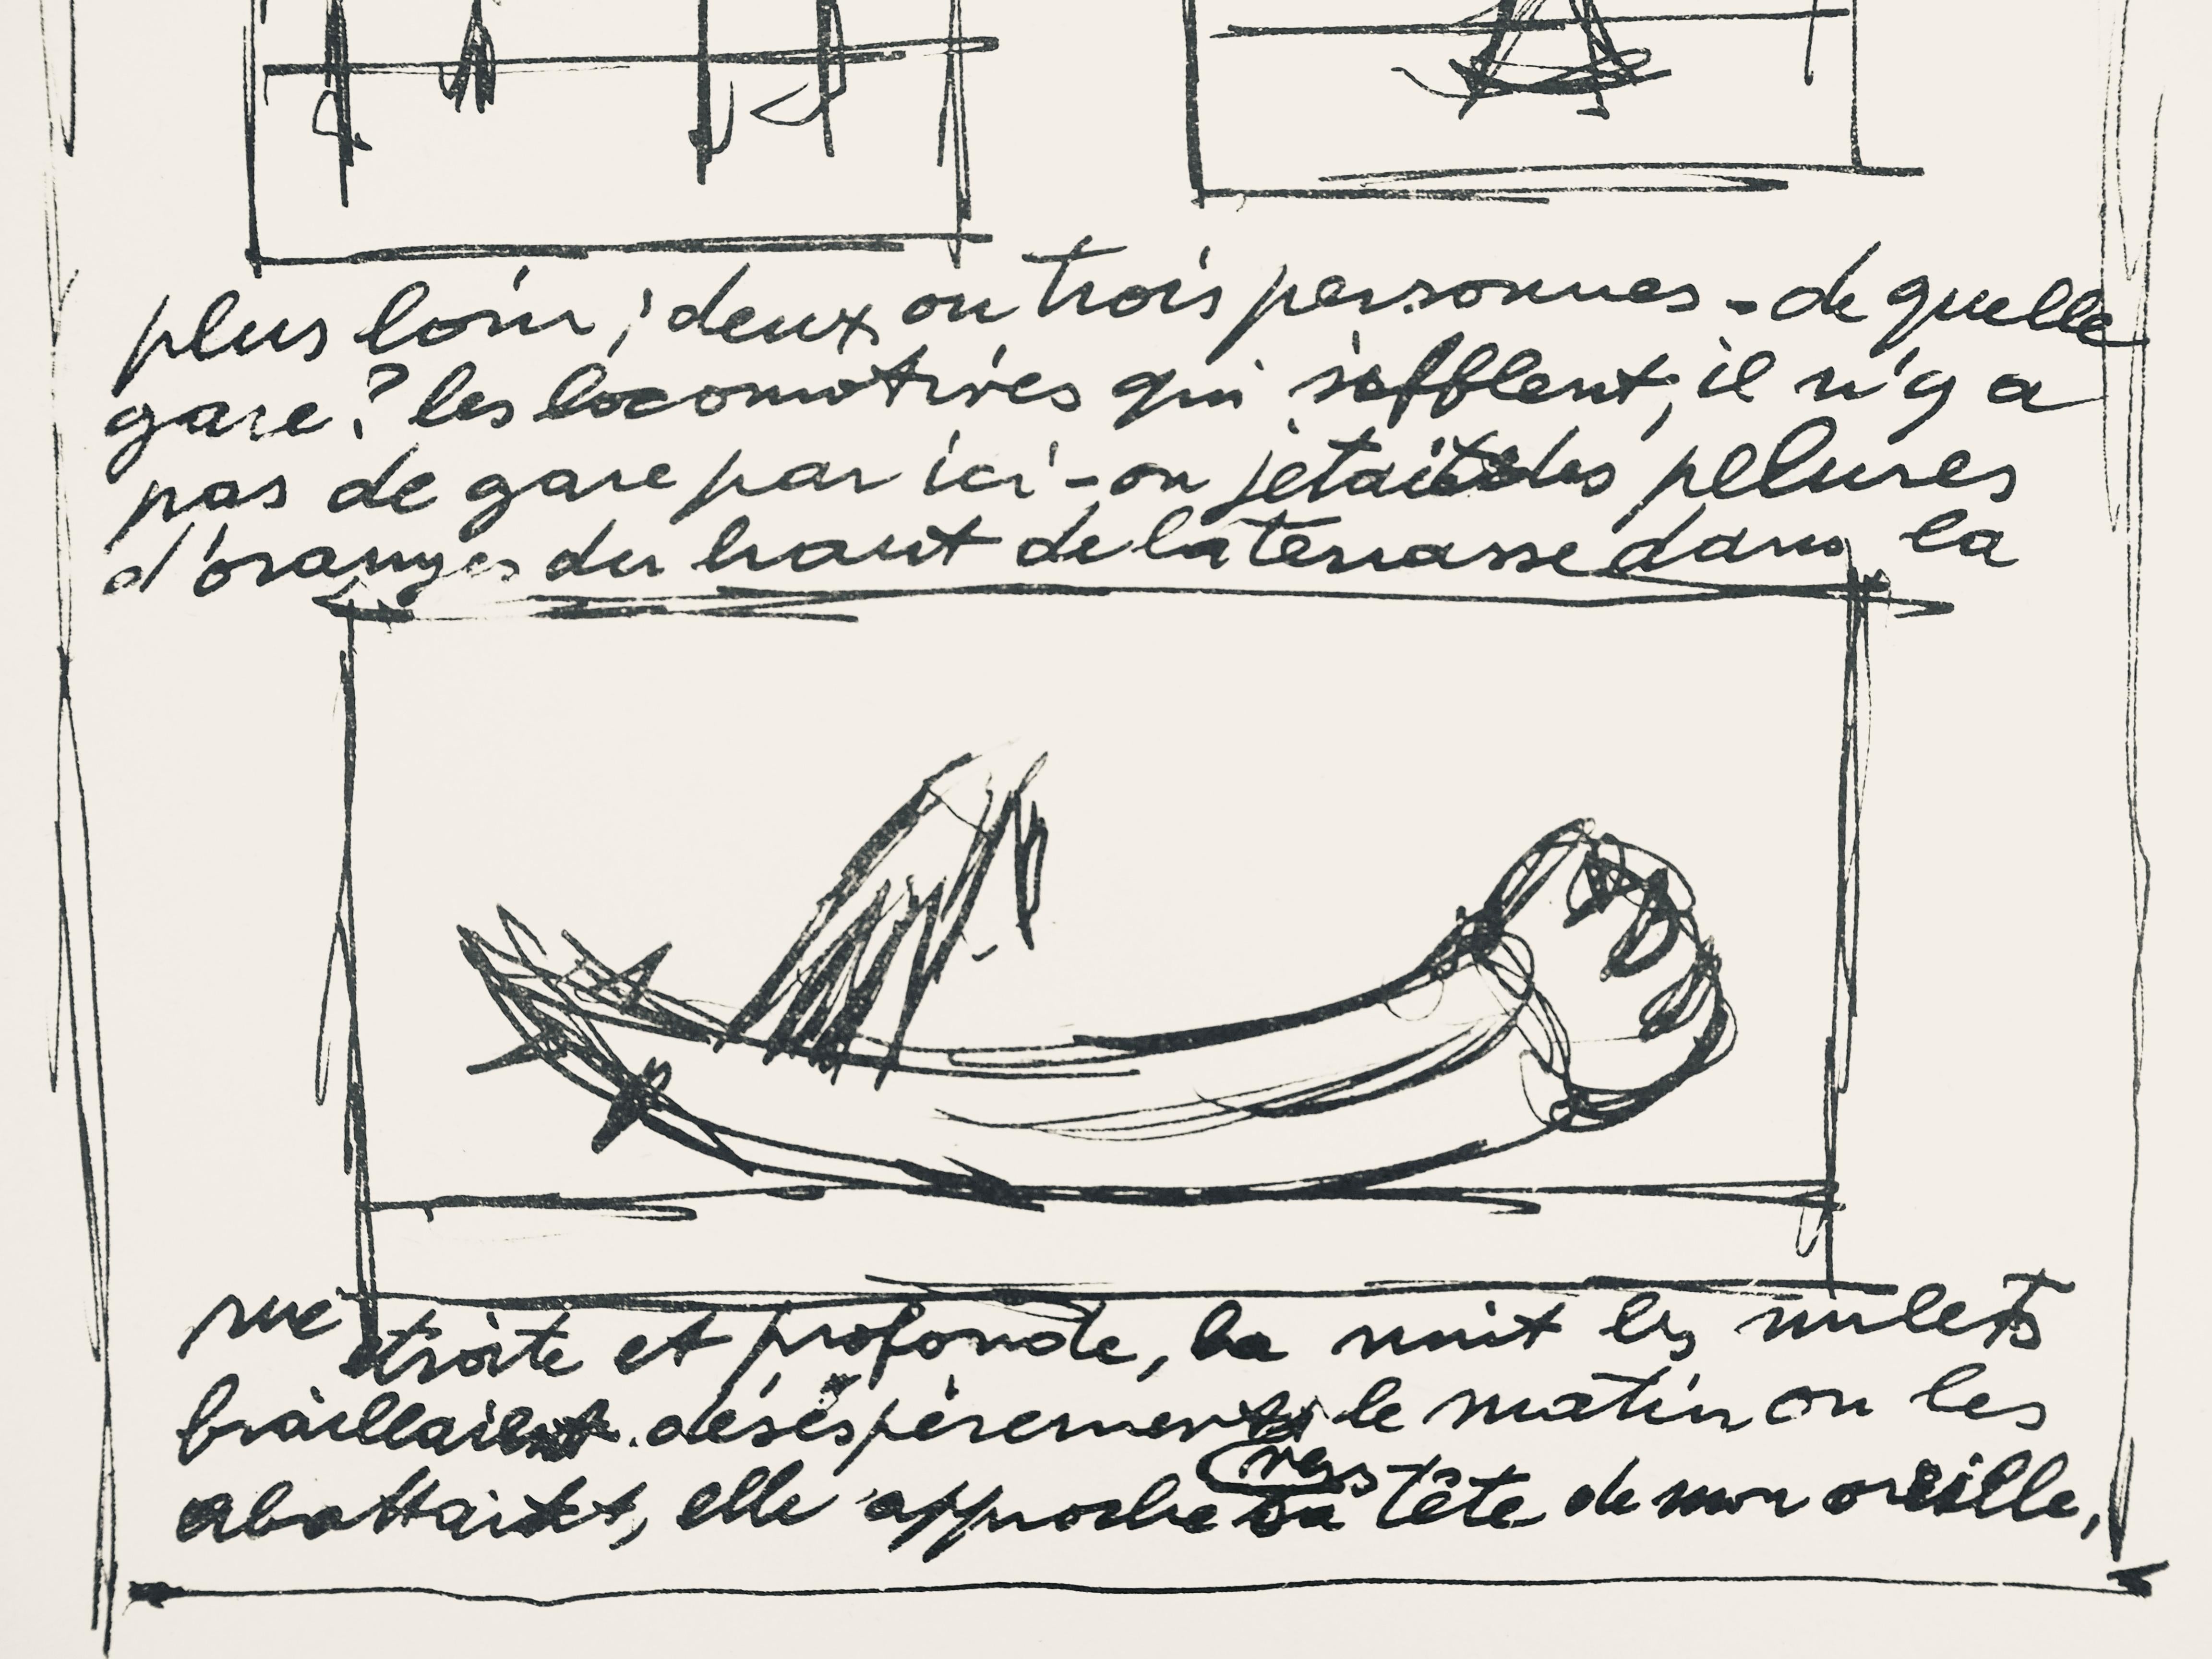 plus loin ; deux ou trois personnes - de quelle
gare ? les locomotives qui sifflent, il n'y a
pas de gare par ici - on jetait des pelures
d'oranges du haut de la terrasse dans la
rue étroite et profonde, la nuit les mulets
braillaient désespérement le matin on les
abattait, elle approche sa tête de mon oreille,